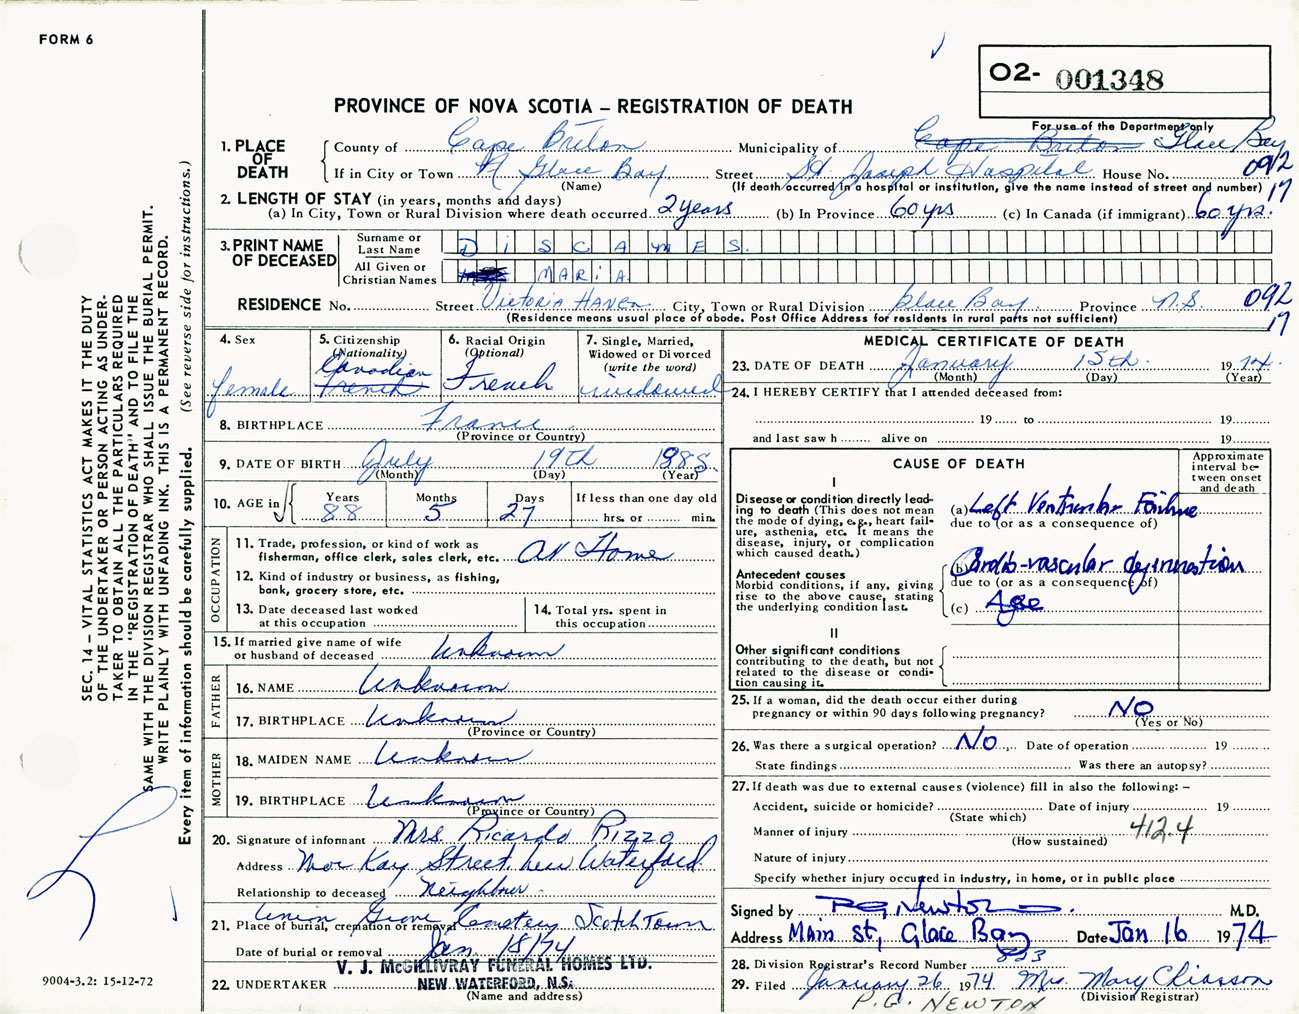 FORM 6
O2- 001348
PROVINCE OF NOVA SCOTIA – REGISTRATION OF DEATH
For use of the Department only
1. PLACE OF DEATH
County of Cape Briton Municipality of Cape Briton Glace Bay
092
If in City or Town N Glace Bay Street St. Joseph Hospital House No.
17
(Name) (If death occurred in a hospital or institution, give the name instead of street and number)
2. LENGTH OF STAY (in years, months and days)
(a) In City, Town or Rural Division where death occurred 2 years (b) In Province 60 yrs (c) In Canada (if immigrant) 60 yrs.
3. PRINT NAME OF DECEASED
Surname or Last Name DISCAMES.
All Given or Christian Names MARiA
RESIDENCE No. Street Victoria Haven City, Town or Rural Division Glace Bay Province N.S. 092
17
(Residence means usual place of abode. Post Office Address for residents in rural parts not sufficient)
4. Sex
female
5. Citizenship (Nationality)
Canadian
French
6. Racial Origin (Optional)
French
7. Single, Married, Widowed or Divorced (write the word)
widowed
8. BIRTHPLACE France
(Province or Country)
9. DATE OF BIRTH July 19th 1885
(Month) (Day) (Year)
10. AGE in
Years Months Days If less than one day old
88 5 27 hrs. or min.
OCCUPATION
11. Trade, profession, or kind of work as fisherman, office clerk, sales clerk, etc. At Home
12. Kind of industry or business, as fishing, bank, grocery store, etc.
13. Date deceased last worked at this occupation
14. Total yrs. spent in this occupation
15. If married give name of wife or husband of deceased Unknown
FATHER
16. NAME Unknown
17. BIRTHPLACE Unknown
(Province or Country)
MOTHER
18. MAIDEN NAME Unknown
19. BIRTHPLACE Unknown
(Province or Country)
20. Signature of informant Mrs. Ricardo Rizzo
Address Kay Street. New Waterford.
Relationship to deceased Neighbour
21. Place of burial, cremation or removal Union Grove Cemetery Scotch Town
Date of burial or removal Jan. 18/74
V. J. McGILLIVRAY FUNERAL HOMES LTD.
22. UNDERTAKER NEW WATERFORD, N.S.
(Name and address)
MEDICAL CERTIFICATE OF DEATH
23. DATE OF DEATH January 15th 1974
(Month) (Day) (Year)
24. I HEREBY CERTIFY that I attended deceased from:
19 to 19
and last saw h alive on 19
CAUSE OF DEATH
Approximate interval between onset and death
I
Disease or condition directly leading to death (This does not mean the mode of dying, e.g., heart failure, asthenia, etc. It means the disease, injury, or complication which caused death.)
(a) Left Ventricular Failure
due to (or as a consequence of)
Antecedent causes
Morbid conditions, if any, giving rise to the above cause, stating the underlying condition last.
(b) Cardio-vascular degeneration
due to (or as a consequence of)
(c) Age
II
Other significant conditions
contributing to the death, but not related to the disease or condition causing it.
25. If a woman, did the death occur either during pregnancy or within 90 days following pregnancy? NO
(Yes or No)
26. Was there a surgical operation? No Date of operation 19
State findings Was there an autopsy?
27. If death was due to external causes (violence) fill in also the following: –
Accident, suicide or homicide? Date of injury 19
(State which)
Manner of injury 412.4
(How sustained)
Nature of injury
Specify whether injury occurred in industry, in home, or in public place
Signed by P.G. Newton M.D.
Address Main St, Glace Bay Date Jan 16 1974
28. Division Registrar's Record Number 823
29. Filed January 26 1974 Mrs. Mary Chiasson
P.G. NEWTON (Division Registrar)
SEC. 14 – VITAL STATISTICS ACT MAKES IT THE DUTY
OF THE UNDERTAKER OR PERSON ACTING AS UNDERTAKER
TO OBTAIN ALL THE PARTICULARS REQUIRED
IN THE "REGISTRATION OF DEATH" AND TO FILE THE
SAME WITH THE DIVISION REGISTRAR WHO SHALL ISSUE THE BURIAL PERMIT.
WRITE PLAINLY WITH UNFADING INK. THIS IS A PERMANENT RECORD.
Every item of information should be carefully supplied. (See reverse side for instructions.)
9004-3.2: 15-12-72